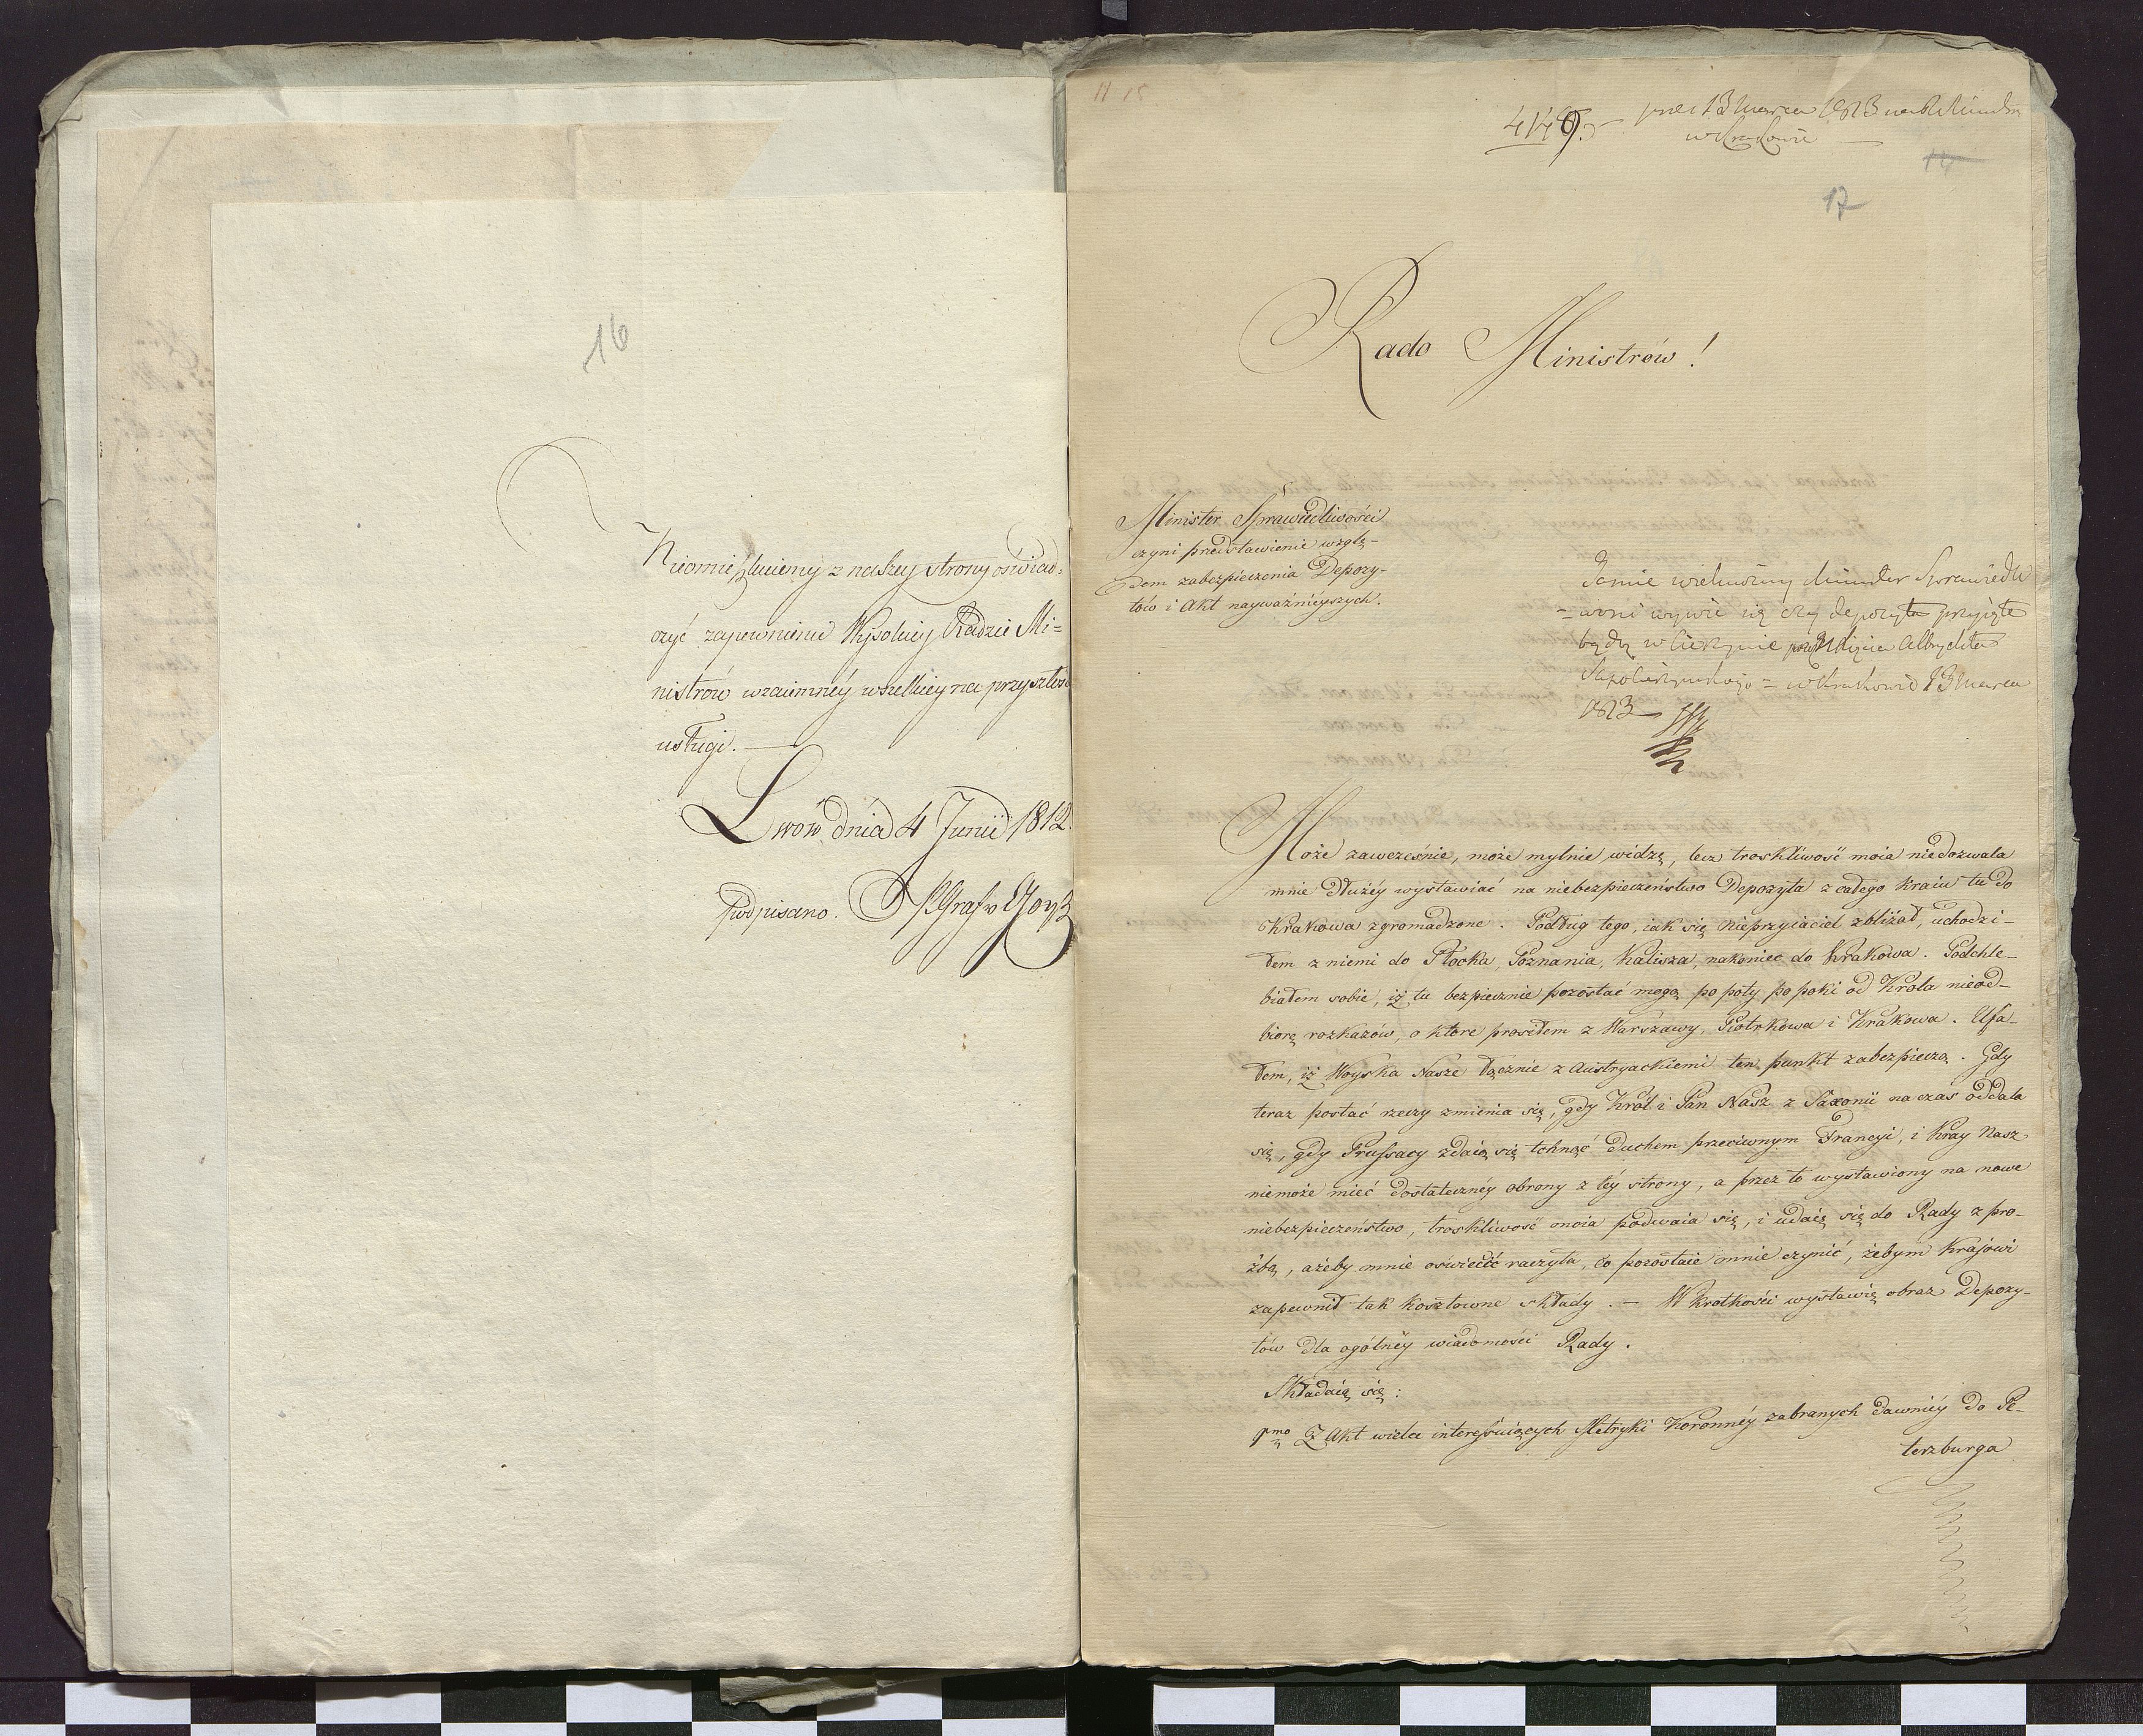 16
Nieomieszkuiemy z naszey strony oświad=
czyć zapewnienie Wysokiey Radzie Mi=
nistrów wzaiemnéy wszelkiey na przyszłość
usługi.
Lwów dnia 4 Junii 1812.
Podpisano. Graf v Goyß
11 15
4149. 13 Marca 1813
w Krakowie
14
17
Rado Ministrów!
Minister Sprawiedliwości
czyni przedstawienie wzglę-
dem zabezpieczenia Depozy-
tów i Akt nayważnieyszych.
Jaśnie wielmożny Minister Sprawiedli
czy depozyta przyięte
będą w Cieszynie Xięcia Albrychta
w Krakowie 13 Marca
1813
Może zawcześnie, może mylnie widzę, lecz troskliwość moia niedozwala
mnie dłużéy wystawiać na niebezpieczeństwo Depozyta z całego kraiu tu do
Krakowa zgromadzone. Podług tego, iak się nieprzyiaciel zbliżał, uchodzi-
łem z niemi do Płocka, Poznania, Kalisza, nakoniec do Krakowa. Podchle-
białem sobie, iż tu bezpiecznie pozostać mogą po póty po póki od Króla nieod-
biorę rozkazów, o które prosiłem z Warszawy, Piotrkowa i Krakowa. Ufa-
łem, iż Woyska Nasze łącznie z Austryackiemi ten punkt zabezpieczą. Gdy
teraz postać rzeczy zmienia się, gdy Król i Pan Nasz z Saxonii na czas oddala
się, gdy Prussacy zdaią się tchnąć duchem przeciwnym Francyi, i Kray Nasz
niemoże mieć dostatecznéy obrony z téy strony, a przez to wystawiony na nowe
niebezpieczeństwo, troskliwość moia podwaia się, i udaię się do Rady z pro-
źbą, ażeby mnie oświecić raczyła, co pozostaie mnie czynić, żebym Krajowi
zapewnił tak kosztowne składy. — W krotkości wystawię obraz Depozy-
tów dla ogólnéy wiadomości Rady.
Składaią się:
1mo Z Akt wiela interessuiących Metryki Koronnéy zabranych dawniéy do Pe-
terzburga